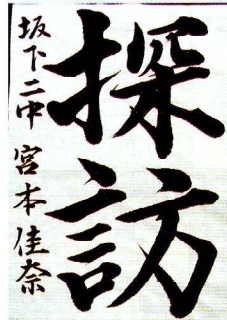 探訪
坂下二中 宮本佳奈